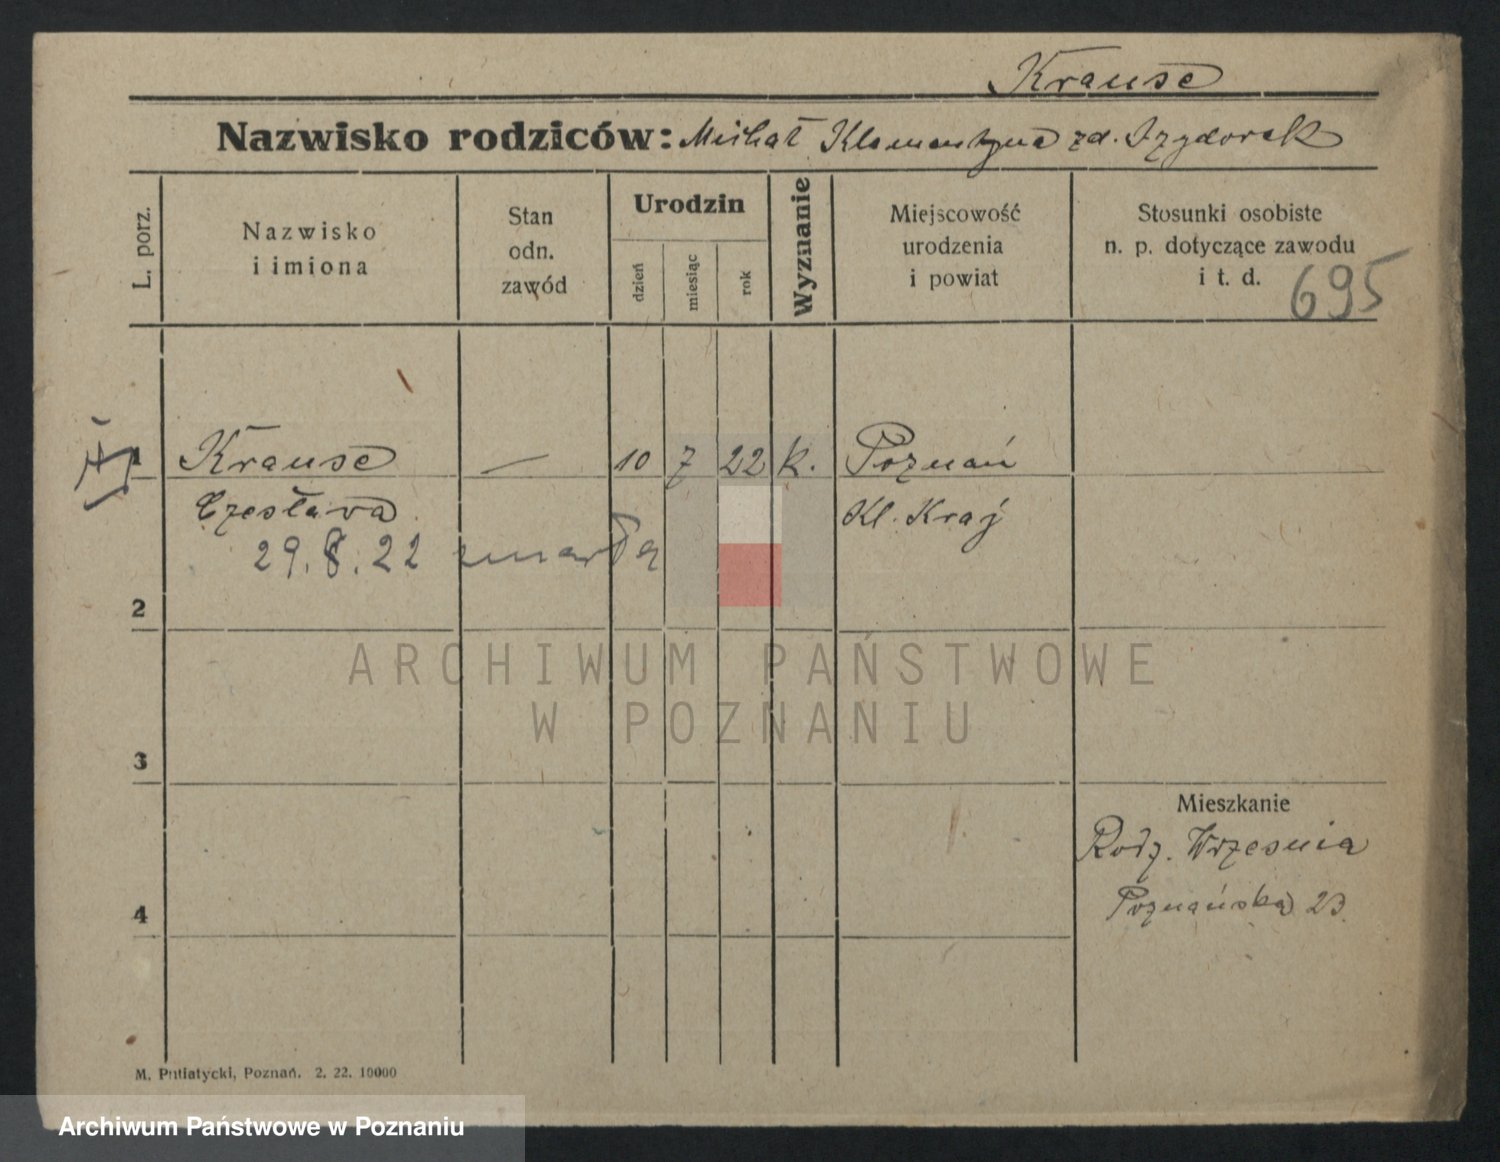 Krause
Nazwisko rodziców: Michał Klementyna zd. Izydorek
L. porz.
Nazwisko
i imiona
Stan
odn.
zawód
Urodzin
dzień
miesiąc
rok
Wyznanie
Miejscowość
urodzenia
i powiat
Stosunki osobiste
n. p. dotyczące zawodu
i t. d.
695
1 Krause — 10 7 22 k. Poznań
Czesława Kl. Kraj
29.8.22 zmarła
2
ARCHIWUM PAŃSTWOWE
W POZNANIU
3
Mieszkanie
Rodz. Wrzesnia
4 Poznańska 23
M. Putiatycki, Poznań. 2. 22. 10000
Archiwum Państwowe w Poznaniu